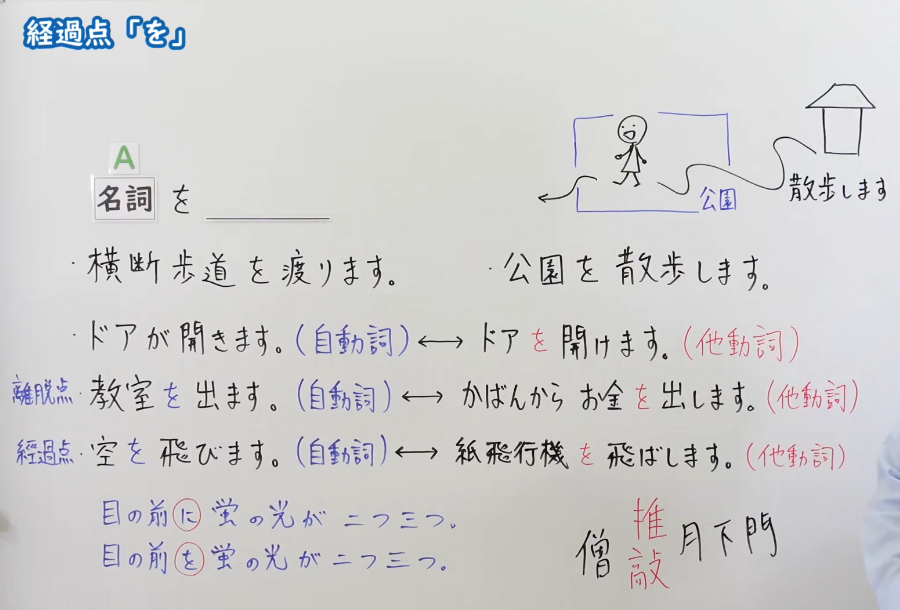 経過点「を」
A
名詞 を
公園
散歩します
・横断歩道を渡ります。
・公園を散歩します。
・ドアが開きます。(自動詞)⟷ドアを開けます。(他動詞)
離脱点・教室を出ます。(自動詞)⟷かばんからお金を出します。(他動詞)
経過点・空を飛びます。(自動詞)⟷紙飛行機を飛ばします。(他動詞)
目の前に蛍の光が二つ三つ。
目の前を蛍の光が二つ三つ。
僧推敲月下門